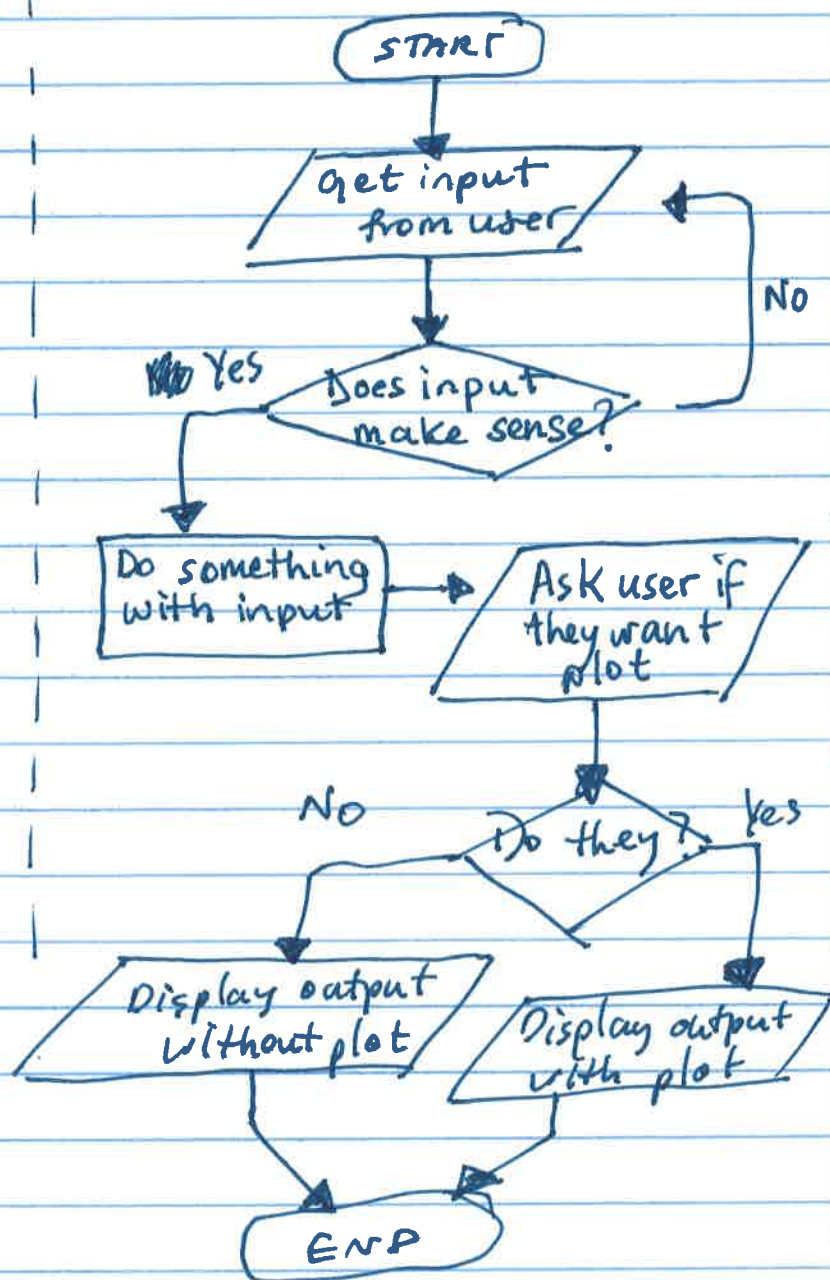 START
Get input
from user
No
Yes
Does input
make sense?
Do something
with input
Ask user if
they want
plot
No
Do they?
Yes
Display output
without plot
Display output
with plot
END